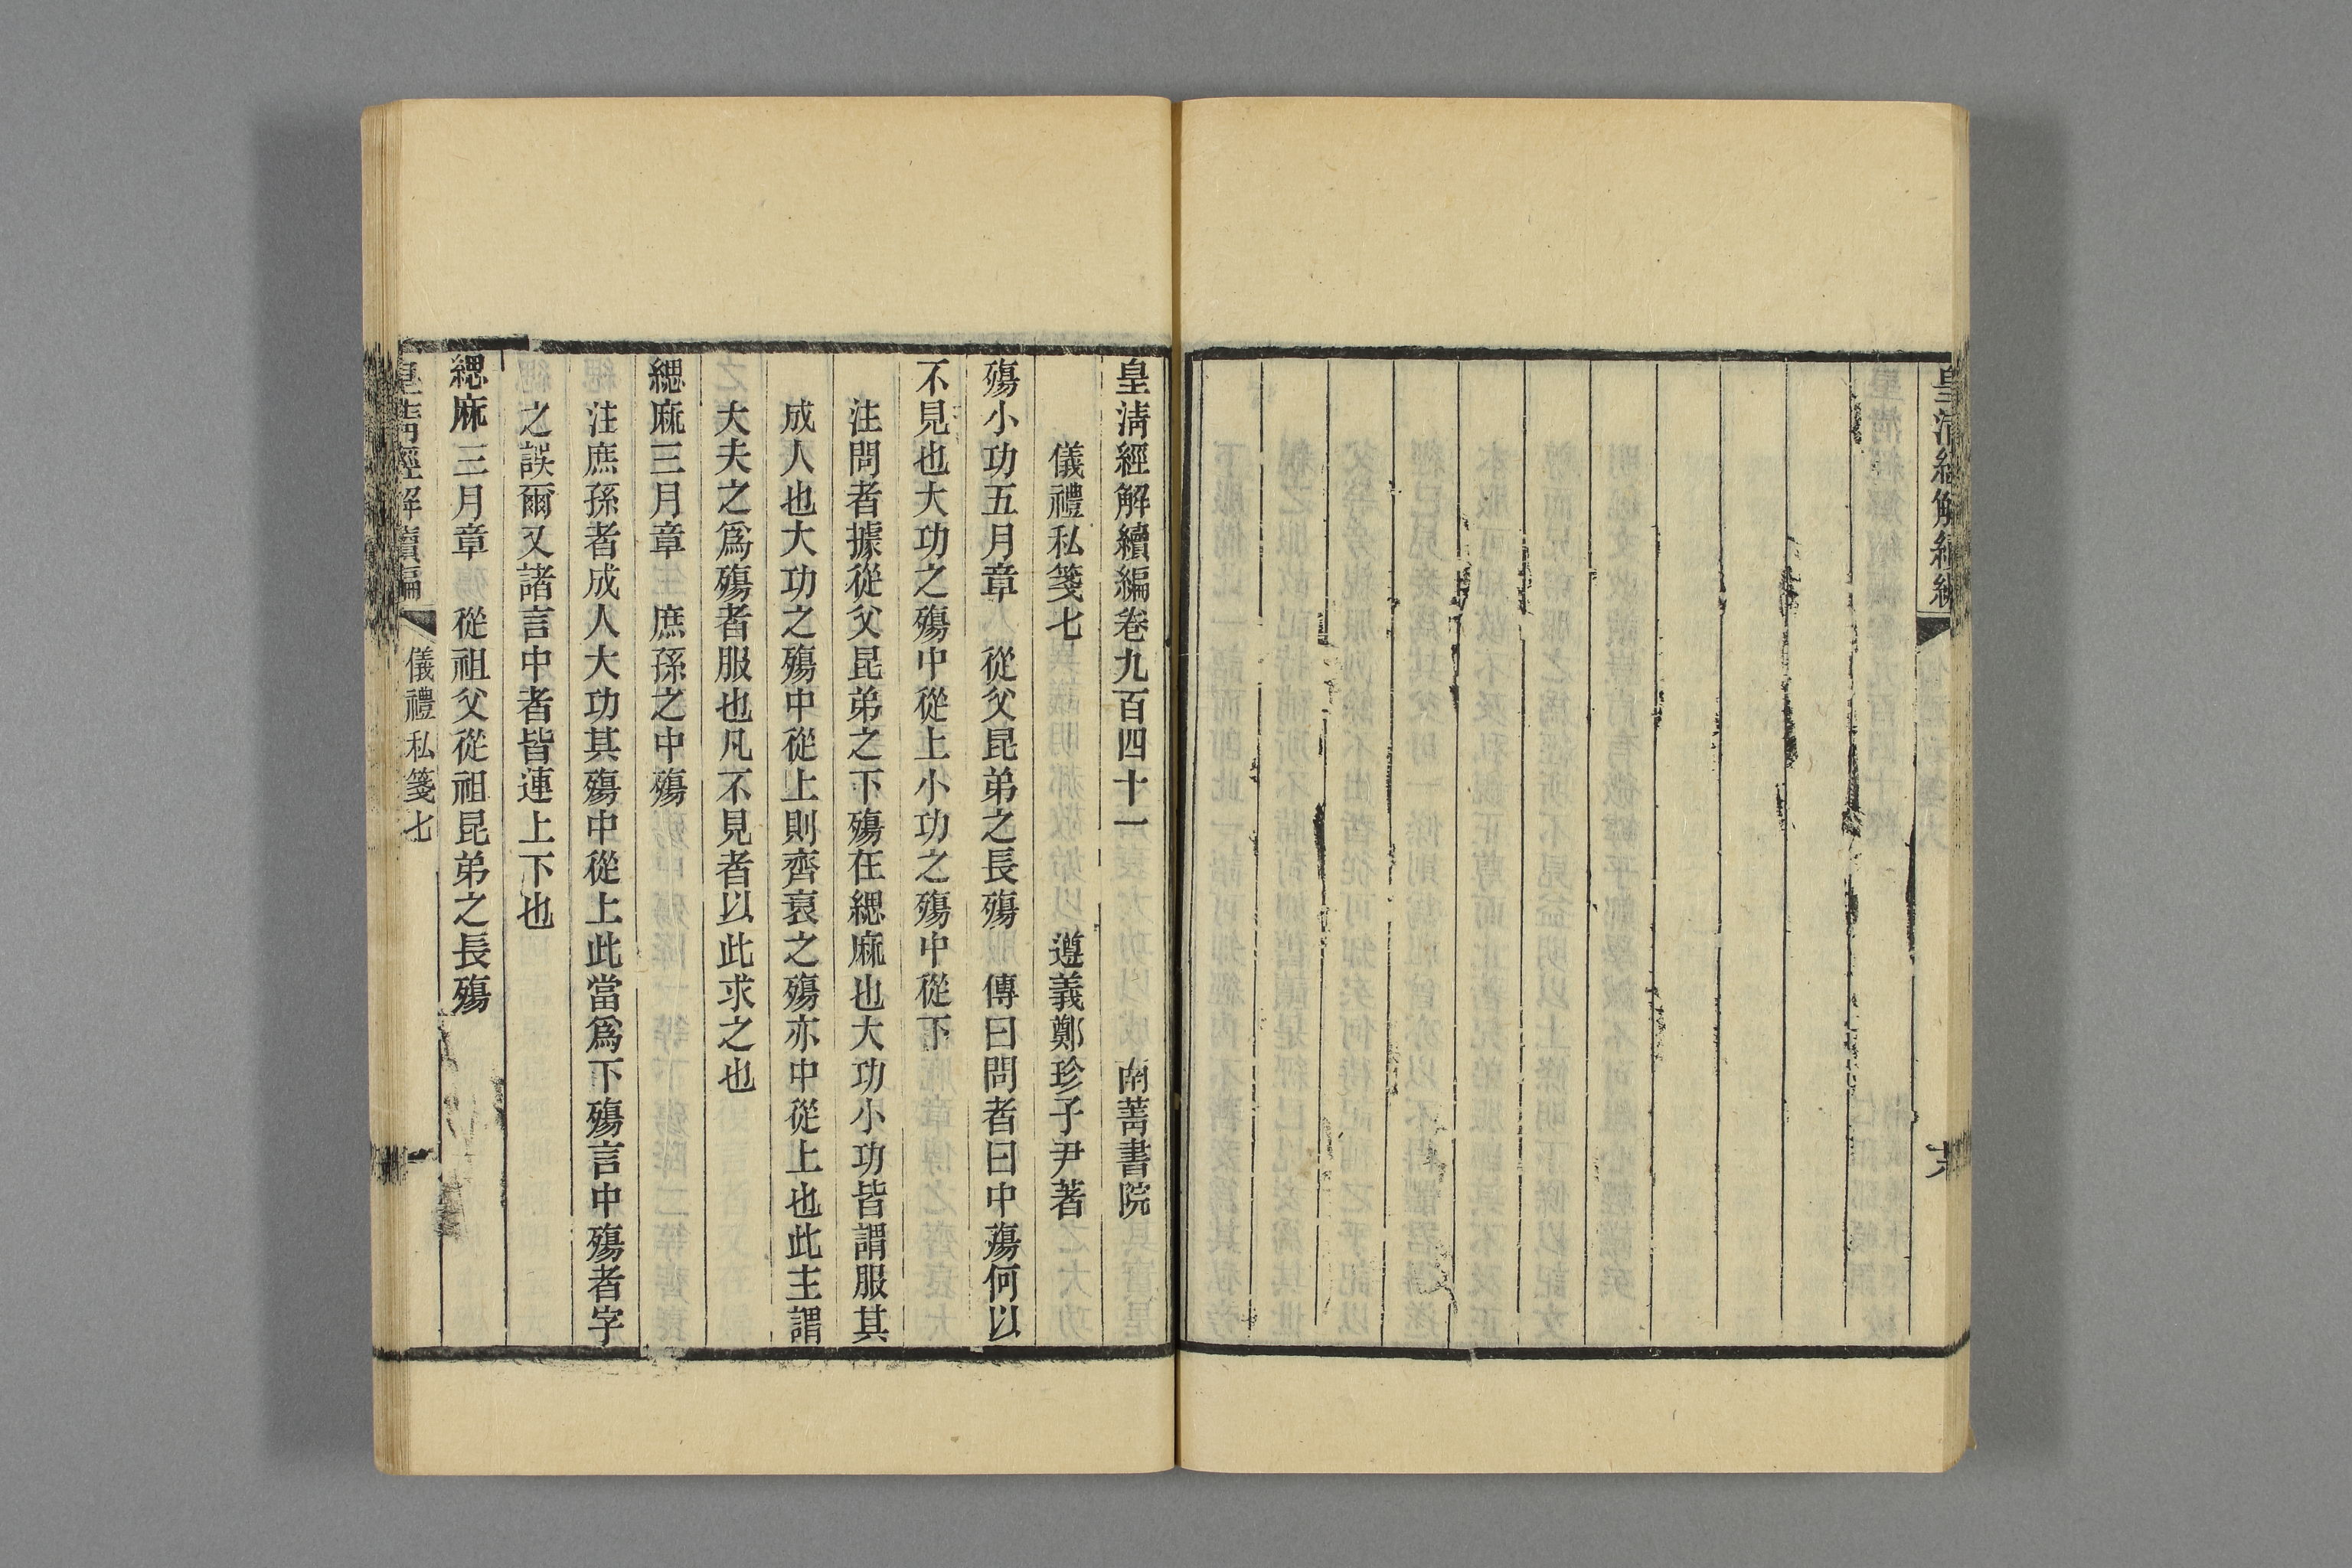 皇清經解續編
皇清經解續編卷九百四十一 南菁書院
儀禮私箋七 遵義鄭珍子尹著
殤小功五月章 從父昆弟之長殤 傳曰問者曰中殤何以
不見也大功之殤中從上小功之殤中從下
注問者據從父昆弟之下殤在緦麻也大功小功皆謂服其
成人也大功之殤中從上則齊衰之殤亦中從上也此主謂
大夫之爲殤者服也凡不見者以此求之也
緦麻三月章 庶孫之中殤
注庶孫者成人大功其殤中從上此當爲下殤言中殤者字
之誤爾又諸言中者皆連上下也
緦麻三月章 從祖父從祖昆弟之長殤
皇清經解續編 儀禮私箋七 一